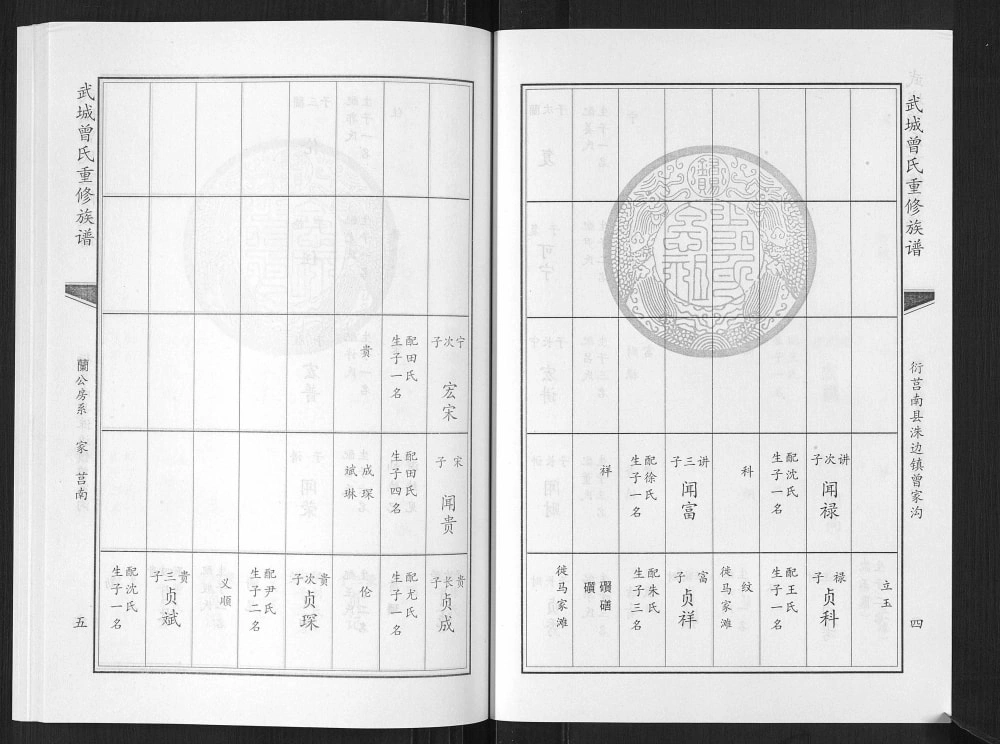 武城曾氏重修族谱
衍莒南县洙边镇曾家沟
四
讲次子
闻禄
配沈氏
生子一名
科
讲三子
闻富
配徐氏
生子一名
祥
立玉
禄子
贞科
配王氏
生子一名
纹
徙马家滩
富子
贞祥
配朱氏
生子三名
徙马家滩
武城曾氏重修族谱
蘭公房系
家
莒南
五
宁次子
宏宋
配田氏
生子一名
贵
宋子
闻贵
配田氏
生子四名
成琛
斌琳
贵长子
贞成
配尤氏
生子一名
伦
贵次子
贞琛
配尹氏
生子二名
义顺
贵三子
贞斌
配沈氏
生子一名